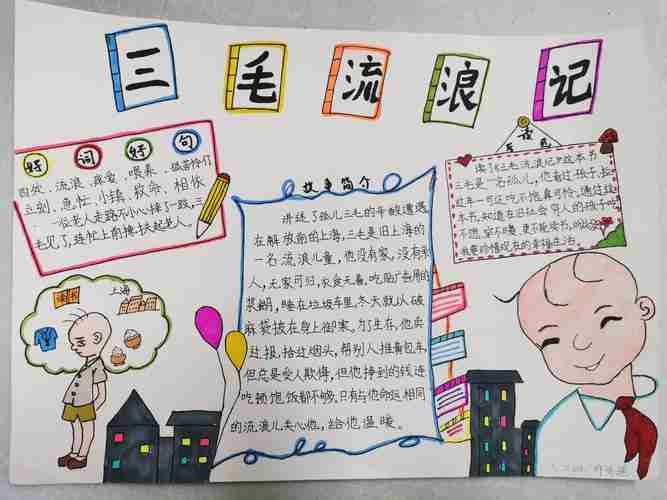 三毛流浪记
好词好句
流浪、疼爱、喂养、
立刻、急忙、小镇、救命、相依
一位老人走路不小心摔了一跤,三
毛见了,连忙上前搀扶起老人。
读书
上海
故事简介
讲述了孤儿三毛的辛酸遭遇
在解放前的上海,三毛是旧上海的
一名流浪儿童,他没有家,没有亲
人,无家可归,衣食无着。吃贴广告用的
浆糊,睡在垃圾车里,冬天就以破
麻袋披在身上御寒。为了生存,他卖
过报,拾过烟头,帮别人推黄包车,
但总是受人欺侮,但他挣到的钱连
吃顿饱饭都不够,只有与他命运相同
的流浪儿关心他,给他温暖。
读
读了《三毛流浪记》这本书
三毛是一名孤儿,他看过孩子,拉
过车,可还吃不饱,真可怜,通过这
本书,知道在旧社会穷人的孩子吃
不饱,穿不暖,更不能读书,所以
我要珍惜现在的幸福生活。